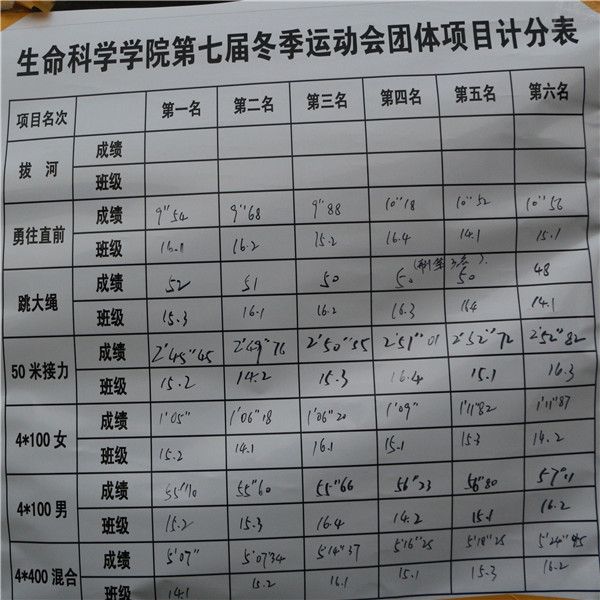 生命科学学院第七届冬季运动会团体项目计分表
项目名次 第一名 第二名 第三名 第四名 第五名 第六名
拔 河 成绩
班级
勇往直前 成绩 9"54 9"68 9"88 10"18 10"52 10"56
班级 16.1 16.2 15.2 16.4 14.1 15.1
跳大绳 成绩 52 51 50 50 50 48
班级 15.3 16.1 16.2 16.3 16.4 14.1
50米接力 成绩 2'45"45 2'49"76 2'50"55 2'51"01 2'52"72 2'52"82
班级 15.2 14.2 15.3 16.4 15.1 16.3
4*100女 成绩 1'05" 1'06"18 1'06"20 1'09" 1'11"82 1'11"87
班级 15.2 14.1 16.1 15.1 15.3 14.2
4*100男 成绩 55"10 55"60 55"66 56"23 56"80 57"11
班级 15.2 15.3 16.4 14.2 15.1 16.2
4*400混合 成绩 5'07" 5'07"34 5'14"37 5'16"25 5'18"25 5'24"45
班级 14.1 15.2 16.1 15.1 15.3 16.2